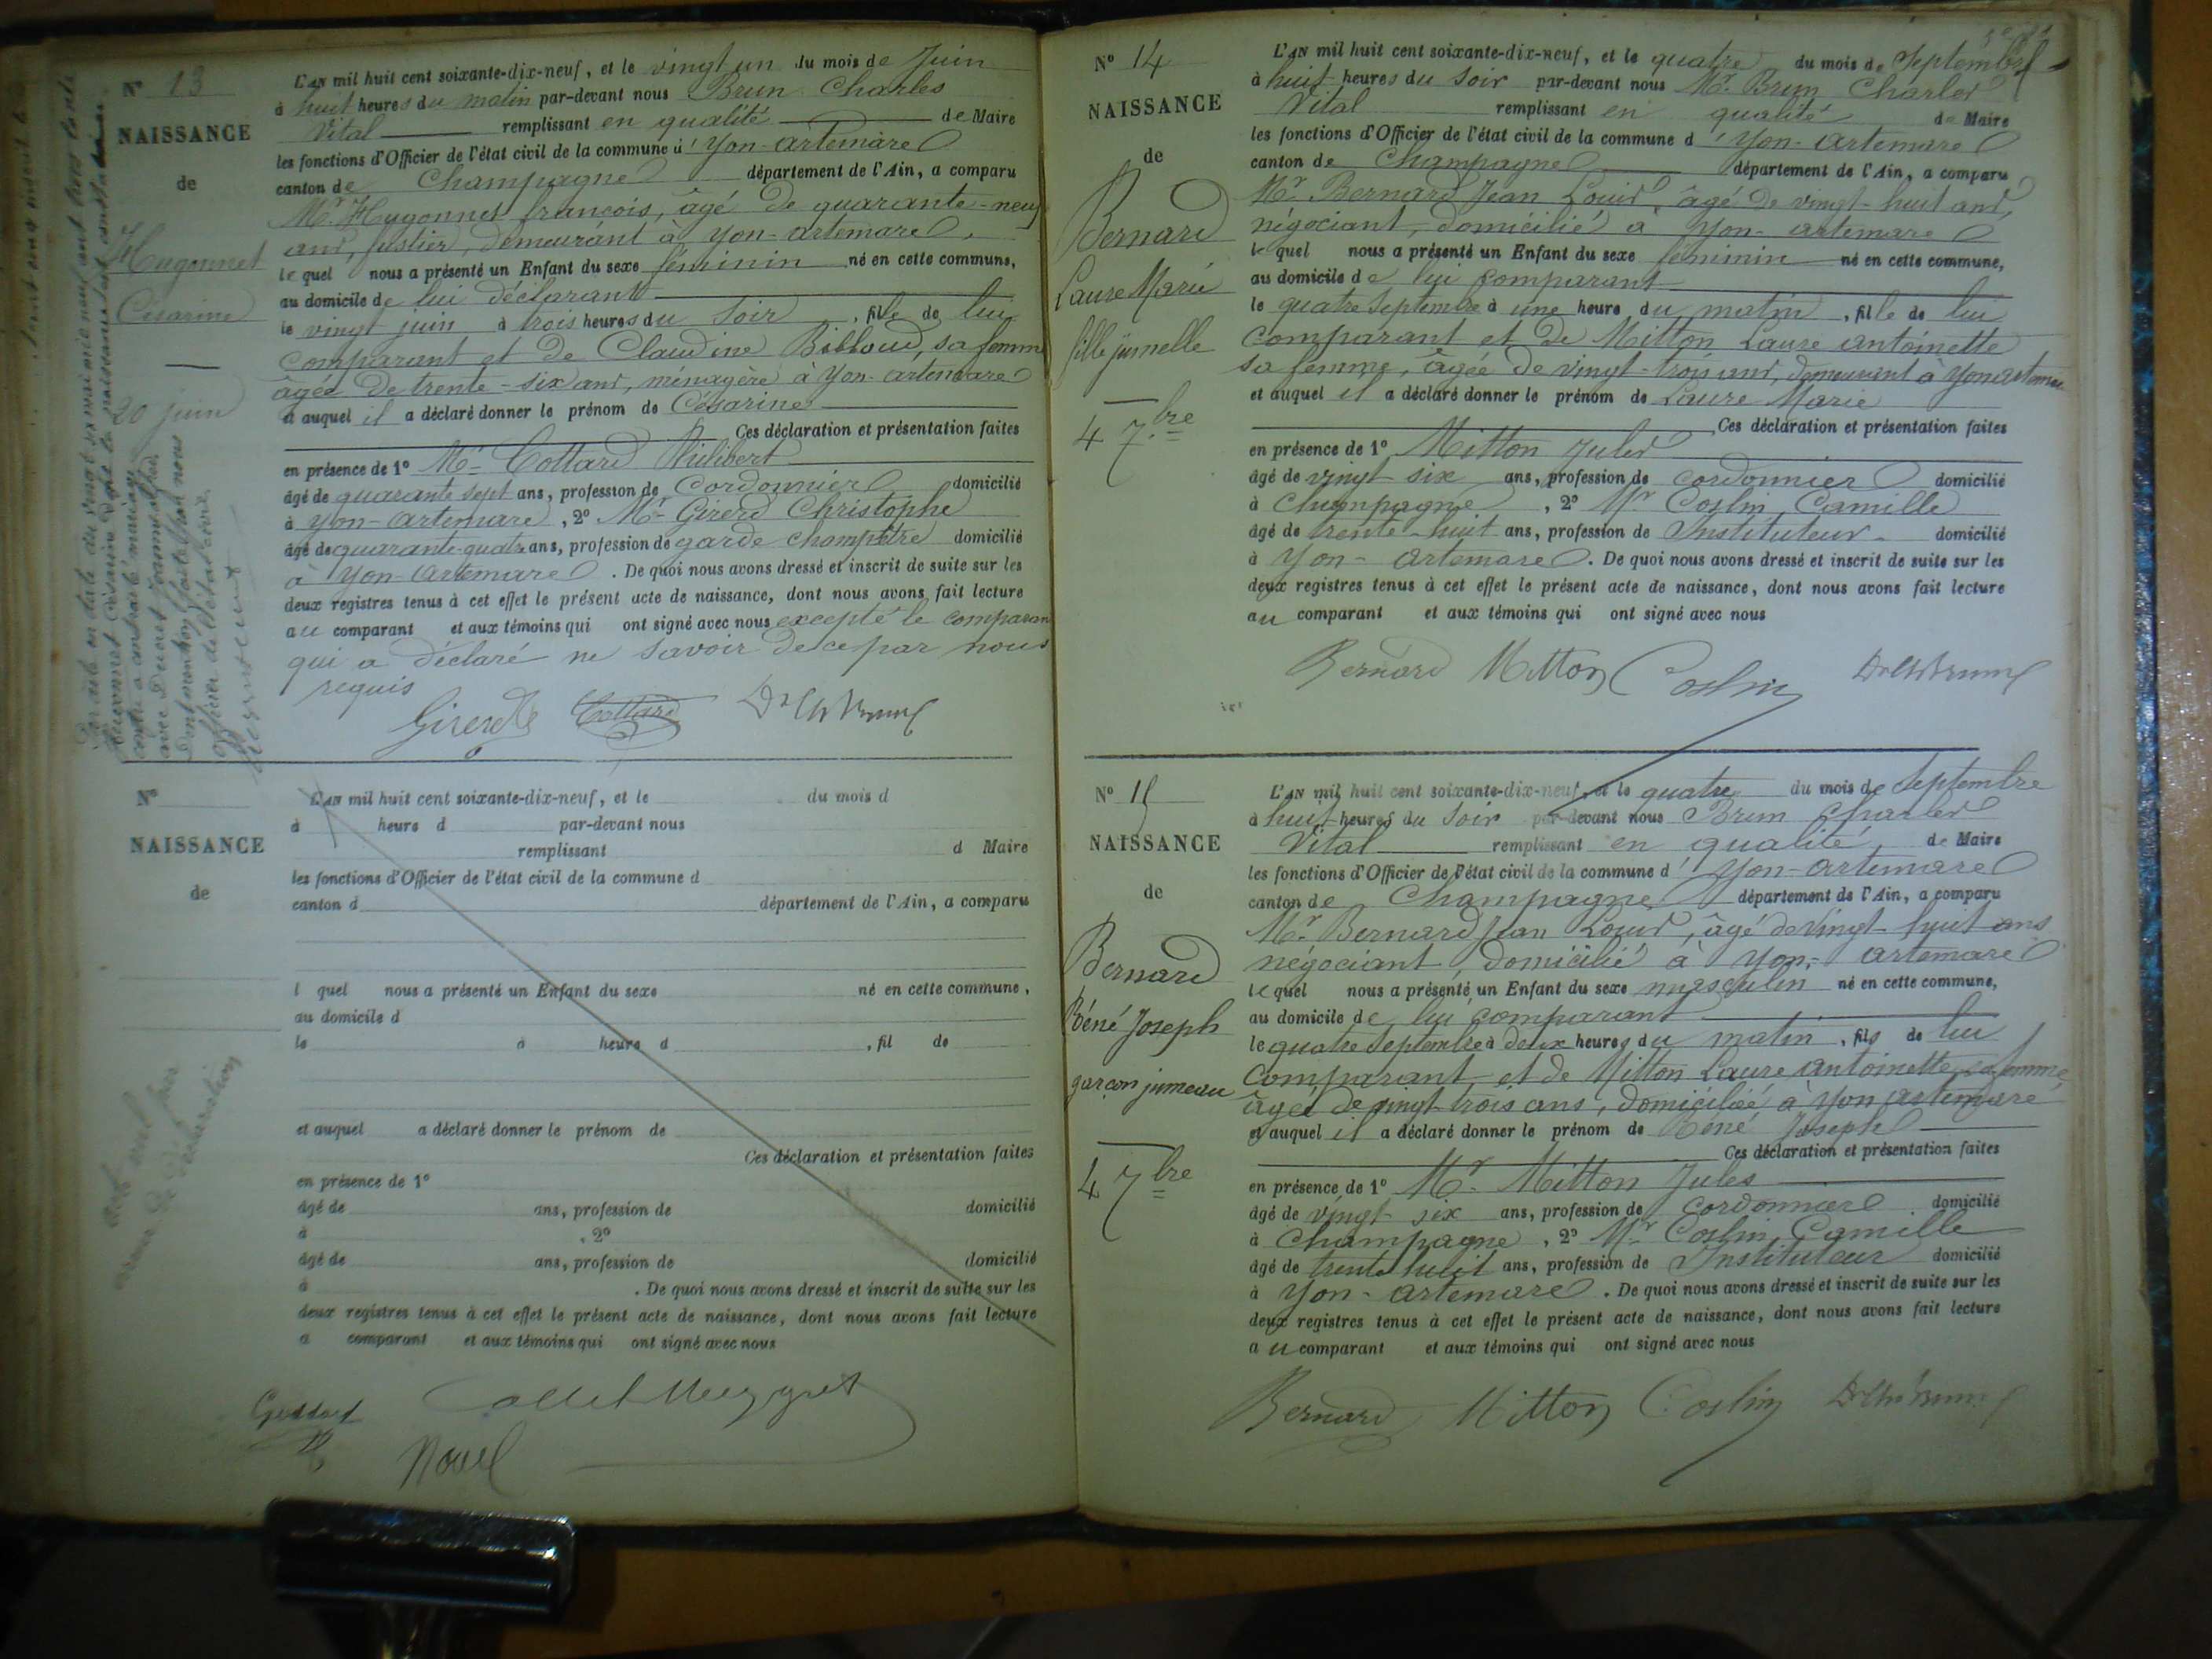 N° 13
NAISSANCE
de
Hugonnet
Césarine
20 juin
L'AN mil huit cent soixante-dix-neuf, et le vingt un du mois de Juin
à huit heures du matin par-devant nous Brun Charles
Vital remplissant en qualité de Maire
les fonctions d'Officier de l'état civil de la commune d'Yon-artemare
canton de Champagne département de l'Ain, a comparu
Mr Hugonnet françois, âgé de quarante-neuf
ans, fustier, demeurant à Yon-artemare,
lequel nous a présenté un Enfant du sexe féminin né en cette commune,
au domicile de lui déclarant
le vingt juin à trois heures du soir, fille de lui
comparant et de Claudine Billoud, sa femme
âgée de trente-six ans, ménagère à Yon-artemare
et auquel il a déclaré donner le prénom de Césarine
Ces déclaration et présentation faites
en présence de 1° Mr Cottard Philibert
âgé de quarante sept ans, profession de Cordonnier domicilié
à Yon-artemare, 2° Mr Girerd Christophe
âgé de quarante-quatre ans, profession de garde champêtre domicilié
à Yon-artemare. De quoi nous avons dressé et inscrit de suite sur les
deux registres tenus à cet effet le présent acte de naissance, dont nous avons fait lecture
au comparant et aux témoins qui ont signé avec nous excepté le comparant
qui a déclaré ne savoir de ce par nous
requis
Girerd Cottard Dr Ch Brun
N°
NAISSANCE
de
L'AN mil huit cent soixante-dix-neuf, et le du mois d
à heure d par-devant nous
remplissant d Maire
les fonctions d'Officier de l'état civil de la commune d
canton d département de l'Ain, a comparu
l quel nous a présenté un Enfant du sexe né en cette commune,
au domicile d
le à heure d , fil de
et auquel a déclaré donner le prénom de
Ces déclaration et présentation faites
en présence de 1°
âgé de ans, profession de domicilié
à , 2°
âgé de ans, profession de domicilié
à . De quoi nous avons dressé et inscrit de suite sur les
deux registres tenus à cet effet le présent acte de naissance, dont nous avons fait lecture
a comparant et aux témoins qui ont signé avec nous
N° 14
NAISSANCE
de
Bernard
Laure Marie
fille jumelle
4 7bre
L'AN mil huit cent soixante-dix-neuf, et le quatre du mois de Septembre
à huit heures du soir par-devant nous Mr. Brun Charles
Vital remplissant en qualité de Maire
les fonctions d'Officier de l'état civil de la commune d'Yon-artemare
canton de Champagne département de l'Ain, a comparu
Mr Bernard Jean Louis, âgé de vingt-huit ans,
négociant, domicilié à Yon-artemare
lequel nous a présenté un Enfant du sexe féminin né en cette commune,
au domicile de lui comparant
le quatre Septembre à une heure du matin, fille de lui
comparant et de Mitton Laure antoinette
sa femme, âgée de vingt-trois ans, demeurant à Yon artemare
et auquel il a déclaré donner le prénom de Laure Marie
Ces déclaration et présentation faites
en présence de 1° Mitton Jules
âgé de vingt six ans, profession de cordonnier domicilié
à Champagne, 2° Mr Coslin Camille
âgé de trente-huit ans, profession de Instituteur domicilié
à Yon-artemare. De quoi nous avons dressé et inscrit de suite sur les
deux registres tenus à cet effet le présent acte de naissance, dont nous avons fait lecture
au comparant et aux témoins qui ont signé avec nous
Bernard Mitton Coslin Dr Ch Brun
N° 15
NAISSANCE
de
Bernard
Réné Joseph
garçon jumeau
4 7bre
L'AN mil huit cent soixante-dix-neuf, et le quatre du mois de Septembre
à huit heures du Soir par-devant nous Brun Charles
Vital remplissant en qualité de Maire
les fonctions d'Officier de l'état civil de la commune d'Yon-artemare
canton de Champagne département de l'Ain, a comparu
Mr. Bernard Jean Louis, âgé de vingt-huit ans
négociant, domicilié à Yon-artemare
lequel nous a présenté un Enfant du sexe masculin né en cette commune,
au domicile de lui comparant
le quatre Septembre à deux heures du matin, fils de lui
comparant et de Mitton Laure antoinette sa femme
âgée de vingt-trois ans, domiciliée à Yon artemare
et auquel il a déclaré donner le prénom de Réné Joseph
Ces déclaration et présentation faites
en présence de 1° Mr. Mitton Jules
âgé de vingt-six ans, profession de cordonnier domicilié
à Champagne, 2° Mr Coslin Camille
âgé de trente huit ans, profession de Instituteur domicilié
à Yon-artemare. De quoi nous avons dressé et inscrit de suite sur les
deux registres tenus à cet effet le présent acte de naissance, dont nous avons fait lecture
au comparant et aux témoins qui ont signé avec nous
Bernard Mitton Coslin Dr Ch Brun